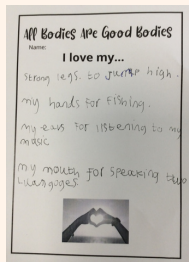 All Bodies Are Good Bodies
Name:
I love my...
Strong legs. to jump high.
my hands for Fishing.
my ears for listening to my
music
my mouth for speaking two
Luangages.